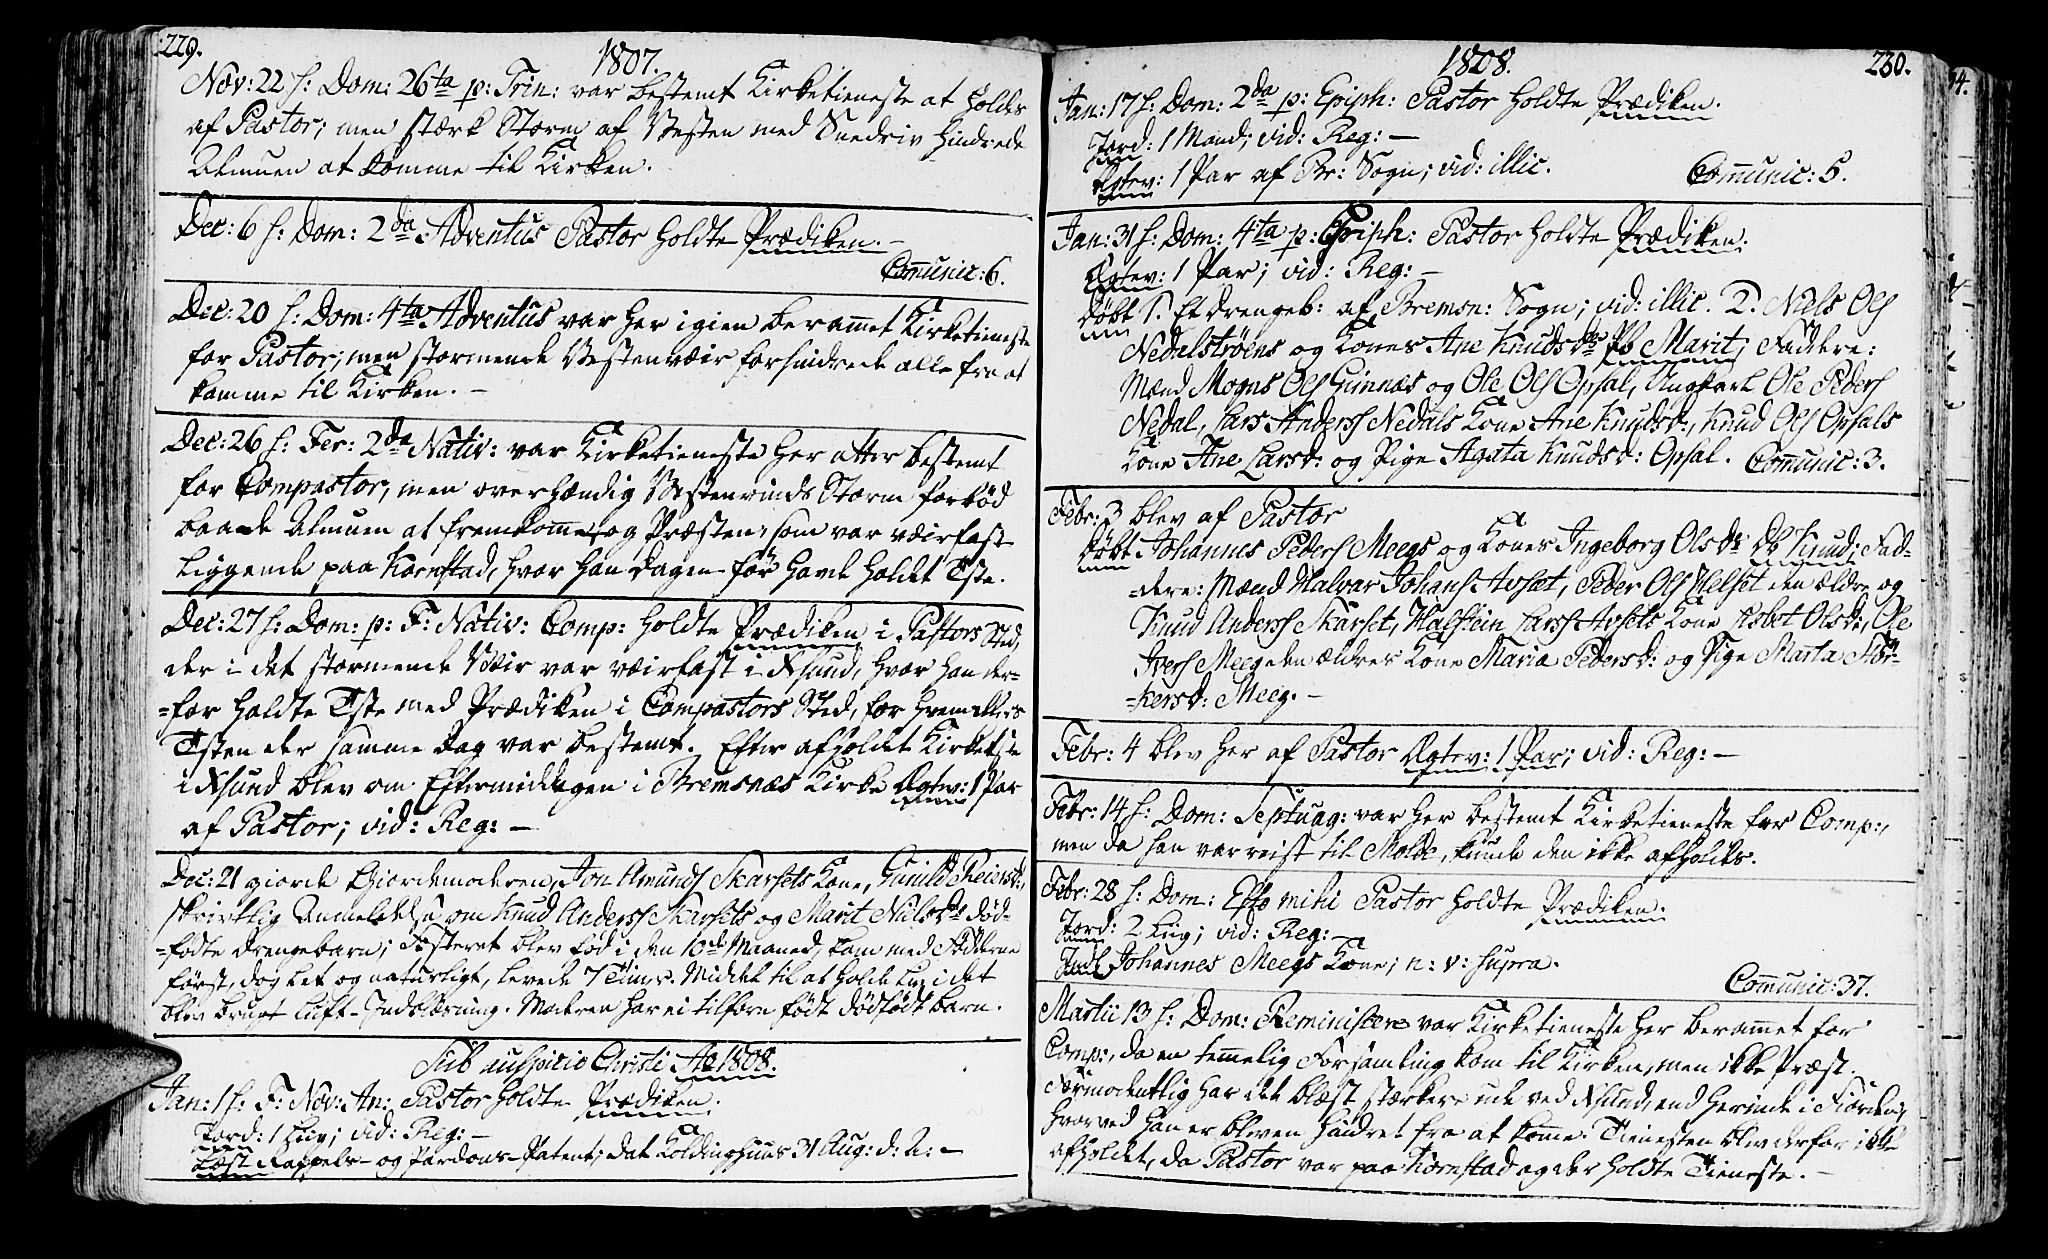 229.
1807.
Nov: 22 h: Dom: 26ta p: Trin: var bestemt Kirketieneste at holdes
af Pastor; men stærk Storm af Vesten med Snedriv hindrede
Almuen at komme til Kirken.
Dec: 6 h: Dom: 2da Adventus Pastor holdte Prædiken. –
Communic: 6.
Dec: 20 h: Dom: 4ta Adventus var her igien berammet Kirketieneste
for Pastor; men stormende Vestenveir forhindrede alle fra at
komme til Kirken. –
Dec: 26 h: Fer: 2da Nativ: var Kirketieneste her atter bestemt
for Compastor, men overhændig Vestenvinds Storm forbød
baade Almuen at fremkomme og Præsten, som var veirfast
liggende paa Kornstad, hvor han Dagen før havde holdet Tste.
Dec: 27 h: Dom: p: F: Nativ: Comp: holdte Prædiken i Pastors Sted,
der i det stormende Veir var veirfast i Xsund, hvor han der-
=for holdte Tste med Prædiken i Compastors Sted, for hvem ellers
Tsten der samme Dag var bestemt. Efter afholdet Kirketste
i Xsund blev om Eftermiddagen i Bremsnæs Kirke Ægtev: 1 Par
af Pastor; vid: Reg: –
Dec: 21 giorde Giordemoderen, Jon Amunds Skarsets Kone, Gunild Reiersd:,
skriftlig Anmeldelse om Knud Anderss Skarsets og Marit Nielsdr død-
=fødte Drengebarn; Fosteret blev fød i den 10de Maaned, kom med Fødderne
først, dog let og naturligt, levede 7 Timer. Middel til at holde Liv i det
blev brugt Luft-Indblæsning. Moderen har ei tilforn født dødfødt Barn.
Sub auspicio Christi Ao 1808.
Jan: 1 h: F: Nov: An: Pastor holdte Prædiken.
Jord: 1 Liig; vid: Reg: –
Læst Rappels- og Pardons-Patent; dat Koldinghuus 31 Aug: d: A: –
1808.
230.
Jan: 17 h: Dom: 2da p: Epiph: Pastor holdte Prædiken.
Jord: 1 Mand; vid: Reg: –
Ægtev: 1 Par af Br: Sogn; vid: illic.
Communic: 5.
Jan: 31 h: Dom: 4ta p: Epiph: Pastor holdte Prædiken.
Ægtev: 1 Par; vid: Reg: –
Døbt 1. Et Drengeb: af Bremsn: Sogn; vid: illic. 2. Niels Ols
Nedalstrøens og Kones Ane Knudsdr Pb Marit; Faddere:
Mænd Mogns Ols Gimnæs og Ole Ols Opsal, Ungkarl Ole Peders
Nedal, Lars Anderss Nedals Kone Ane Knudsd:, Knud Ols Opsals
Kone Ane Larsd: og Pige Agata Knudsd: Opsal. Communic: 3.
Febr: 3 blev af Pastor
Døbt Johannes Peders Meegs og Kones Ingeborg Olsdr Db Knud; Fad-
=dere: Mænd Halvor Johans Avset, Peder Ols Helset den ældre og
Knud Anderss Skarset, Halstein Larss Avsets Kone Lisbet Olsd:, Ole
Ivers Meeg den ældres Kone Maria Pedersd: og Pige Marta Stør-
=kersd: Meeg. –
Febr: 4 blev her af Pastor Ægtev: 1 Par; vid: Reg: –
Febr: 14 h: Dom: Septuag: var her bestemt Kirketieneste for Comp:,
men da han var reist til Molde, kunde den ikke afholdes.
Febr: 28 h: Dom: Esto mihi Pastor holdte Prædiken.
Jord: 2 Liig; vid: Reg: –
Indl Johannes Meegs Kone; n: v: supra.
Communic: 37.
Martii 13 h: Dom: Reminiscere var Kirketieneste her berammet for
Comp:, da en temmelig Forsamling kom til Kirken, men ikke Præst.
Formodentlig har det blæst stærkere ude ved Xsund, end herinde i Fiorden,
hvorved han er bleven hindret fra at komme. Tienesten blev derfor ikke
afholdet, da Pastor var paa Kornstad og der holdte Tieneste. –